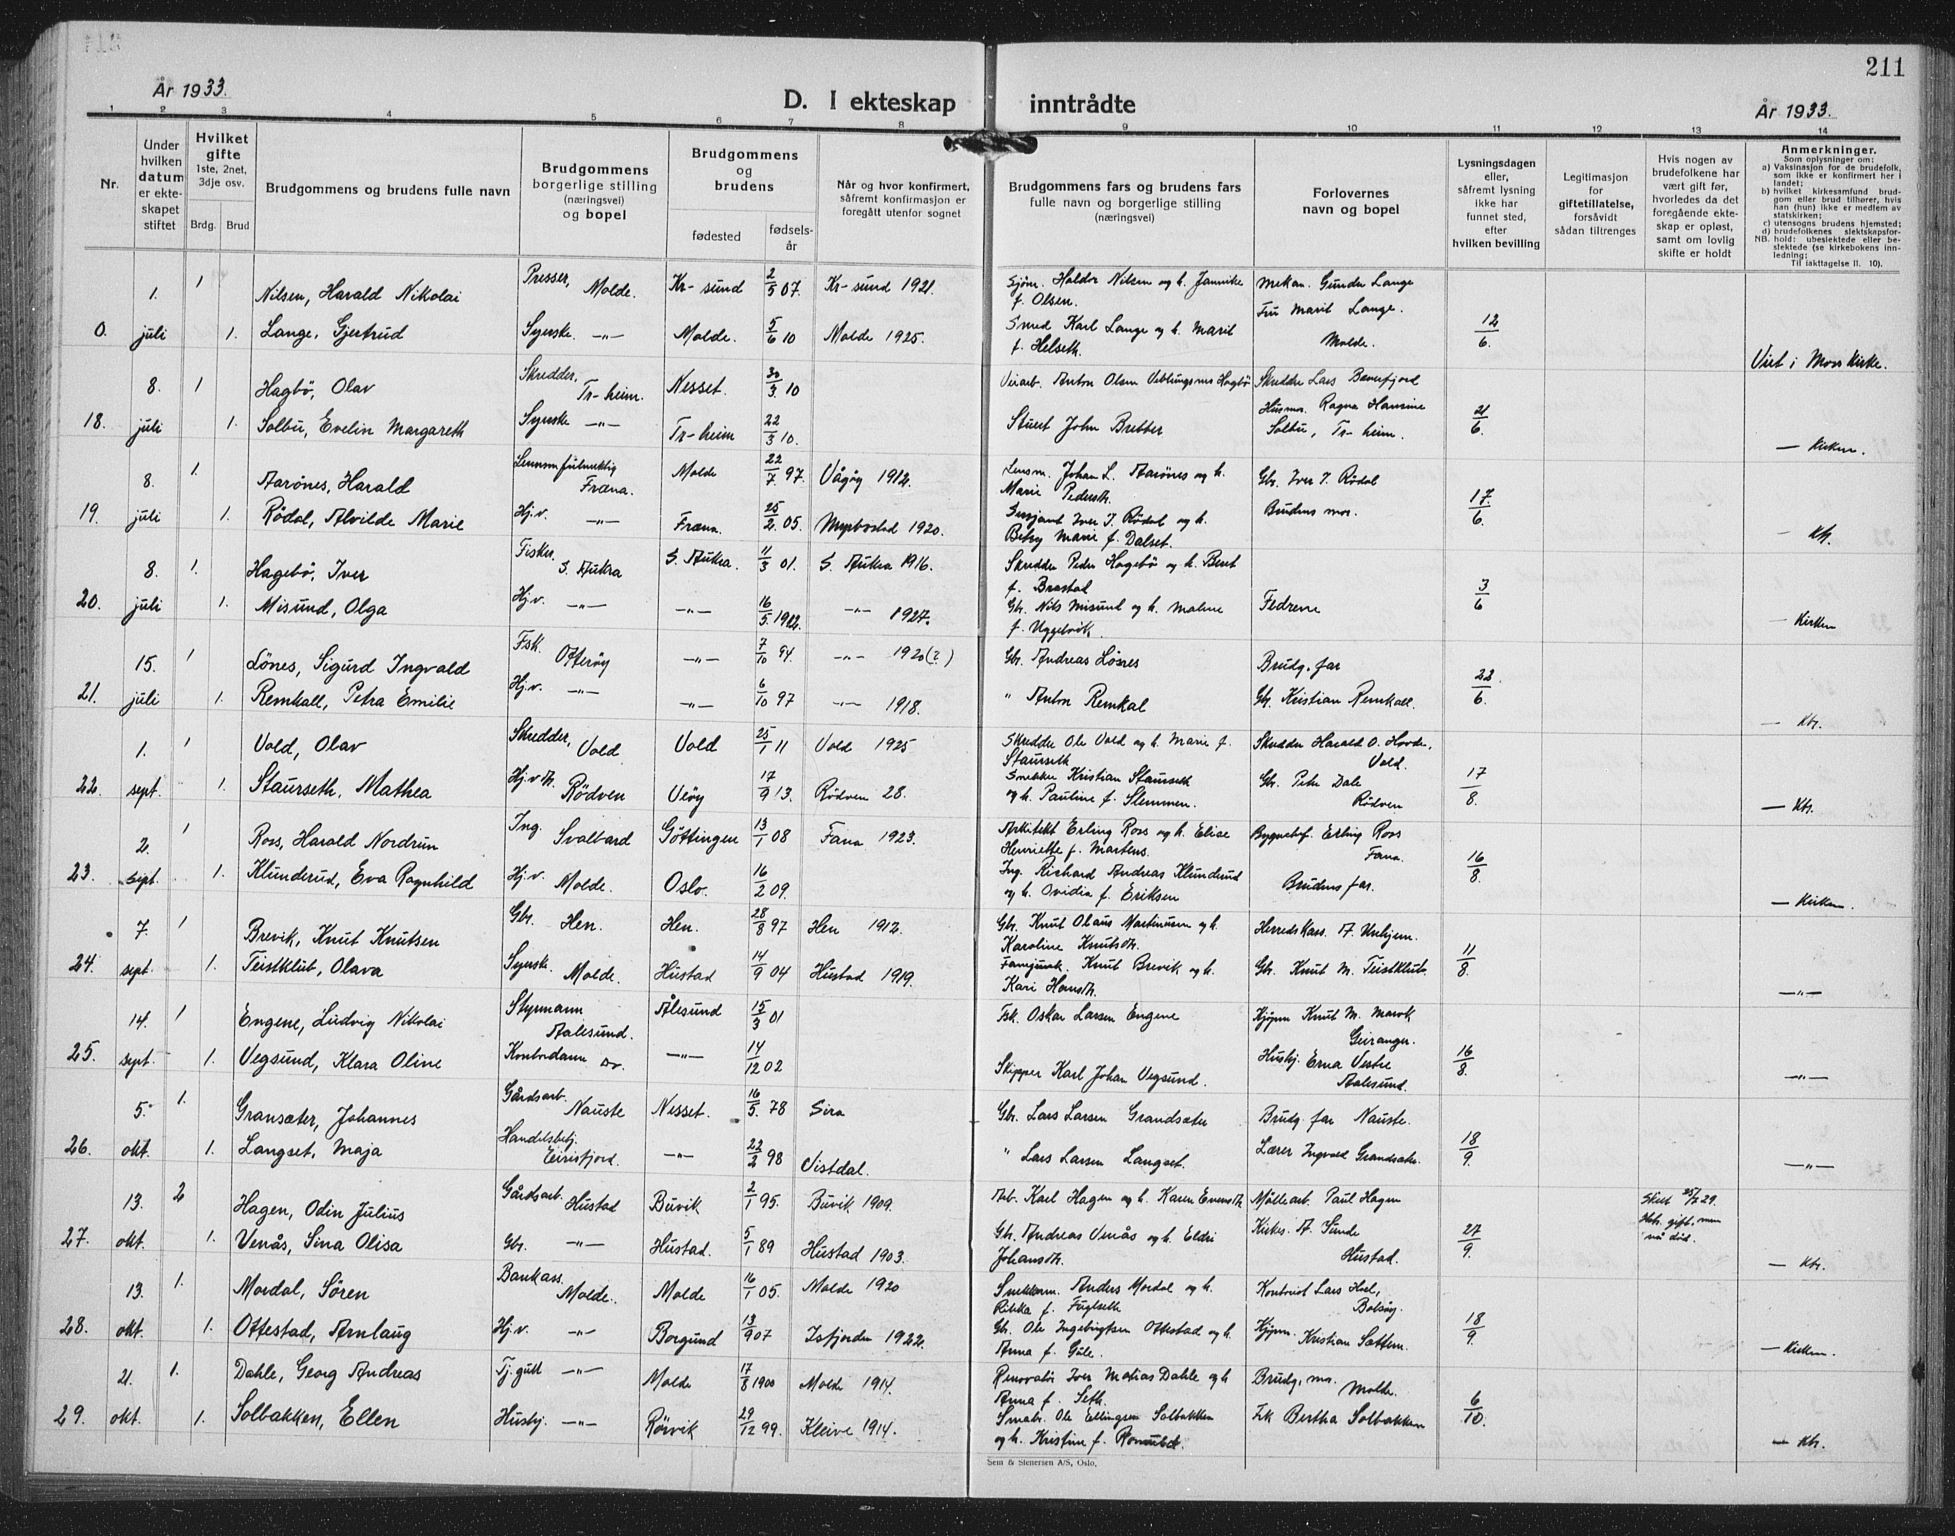 211
År 1933.
D. I ekteskap inntrådte
År 1933.
1 2 3 4 5 6 7 8 9 10 11 12 13 14
Nr.
Under hvilken datum er ekteskapet stiftet
Hvilket gifte
1ste, 2net, 3dje osv.
Brdg. Brud
Brudgommens og brudens fulle navn
Brudgommens borgerlige stilling (næringsvei) og bopel
Brudgommens og brudens
fødested
fødselsår
Når og hvor konfirmert, såfremt konfirmasjon er foregått utenfor sognet
Brudgommens fars og brudens fars fulle navn og borgerlige stilling (næringsvei)
Forlovernes navn og bopel
Lysningsdagen eller, såfremt lysning ikke har funnet sted, efter hvilken bevilling
Legitimasjon for giftetillatelse, forsåvidt sådan tiltrenges
Hvis nogen av brudefolkene har vært gift før, hvorledes da det foregående ekteskap er opløst, samt om lovlig skifte er holdt
Anmerkninger.
Som oplysninger om:
a) Vaksinasjon for de brudefolk, som ikke er konfirmert her i landet;
b) hvilket kirkesamfund brudgom eller brud tilhører, hvis han (hun) ikke er medlem av statskirken;
c) utensogns brudens hjemsted;
d) brudefolkenes slektskapsforhold: ubeslektede eller beslektede (se kirkebokens innledning;
NB.
Til iakttagelse II. 10).
1. 1 Nilsen, Harald Nikolai Presser, Molde. Kr-sund 2/5 07. Kr-sund 1921. Sjøm. Haldor Nilsen og h. Jannike f. Olsen. Mekan. Gunder Lange
0. juli 1. Lange, Gjertrud Syerske -"- Molde. 5/6 10 Molde 1925. Smed Karl Lange og h. Marit f. Helseth. Fru Marit Lange. Molde. 12/6. Viet i Mors Kirke.
8. 1 Hagbø, Olav Skredder, Tr-heim. Nesset. 30/3 10 Veiarb. Anton Olsen Veblungsnes Hagbø Skredder Lars Bæverfjord
18. juli 1. Solbu, Evelin Margareth Syerske -"- Tr-heim 22/3 10. Stuert John Bretter Husmor Ragna Hansine Solbu, Tr-heim. 21/6. - Kirken.
8. 1. Aarönes, Harald Lensm.fullmektig Fræna. Molde 22/7 97. Vågöy 1912. Lensm. Johan L. Aarönes og h. Marie Pedersdt. Gbr. Iver I. Rödal
19. juli 1. Rödal, Alvilde Marie Hj.v. -"- Fræna. 25/2 05. Myrbostad 1920. Iver I. Rödal og h. Betsy Marie f. Dalset. Brudens mor. 17/6. - Kr.
8. 1. Hagebö, Iver Fisker, S. Aukra S. Aukra. 11/3 01. S. Aukra 1916. Skredder Peder Hagebö og h. Beret f. Brastad
20. juli 1. Misund, Olga Hj.v. -"- -"- 16/5 1912. -"- 1927. Gbr. Nils Misund og h. Malene f. Uggelvik. Fedrene 3/6 - Kirken
15. 1 Lönes, Sigurd Ingvald Fsk. Otteröy -"- 7/10 94 -"- 1920(?) Gbr. Andreas Lönes Brudg. far
21. juli 1. Remkall, Petra Emilie Hj.v. -"- -"- 6/10 97 -"- 1918. " Anton Remkal Gbr. Kristian Remkall. 22/6. - Kbr.
1. 1 Vold, Olav Skredder, Vold. Vold 25/1 11 Vold 1925 Skredder Ole Vold og h. Marie f. Staurseth Skredder Harald O. Hovde, Vold.
22. sept. 1. Staurseth, Mathea Hj.v. Rödven Veöy 17/9 13. Rödven 28. Snekker Kristian Staurseth og h. Pauline f. Slemmen. Gbr. Peter Dale Rödven 17/8. - Kbr.
2. 1 Roos, Harald Nordrum Ing. Svalbard Göttingen 13/1 08 Fana 1923. Arkitekt Erling Roos og h. Elise Henriette f. Martens. Erling Roos Fana.
23. sept. 1. Klunderud, Eva Ragnhild Hj.v. Molde. Oslo. 16/2 09. Ing. Richard Andreas Klunderud og h. Ovidia f. Eriksen Brudens far. 16/8. - Kirken.
7. 1 Brevik, Knut Knutsen Gbr. Hen. Hen. 28/8 97 Hen 1912. Gbr. Knut Olaus Martinusen og h. Karoline Knutsdt. Herredskass. A. Unhjem.
24. sept. 1. Teistklub, Olava Syersk. Molde. Hustad 14/9 04 Hustad 1919. Knut Brevik og h. Kari Hansdt. Gbr. Knut M. Teistklub. 11/8. -"-
14. 1 Engene, Ludvig Nikolai Styrmann Aalesund. Ålesund 15/3 01 Fsk. Oskar Larsen Engene Kjøpm Knut M. Marok Geiranger.
25. sept. 1. Vegsund, Klara Oline Kontordame -"- 14/12 02 Skipper Karl Johan Vegsund. Hushj. Erna Vestre Aalesund. 16/8. -"-
5. 1. Gransæter, Johannes Gårdsarb. Nauste Nesset. 16/5. 78 Sira Gbr. Lars Larsen Grandsæter Brudg. far Nauste.
26. okt. 1. Langset, Maja Handelsbetj. Eirisfjord. -"- 22/2 98 Vistdal. " Lars Larsen Langset. Lærer Ingvald Grandsæter. 18/9. -"-
13. 2 Hagen, Odin Julius Gårdsarb. Hustad Buvik 2/1 95. Buvik 1909. Arb. Karl Hagen og h. Karen Evensdt. Möllearb. Paul Hagen Skilt 29.
27. okt. 1. Venås, Sina Olisa Gbr. -"- Hustad. 5/1 89 Hustad 1903. Gbr. Andreas Venås og h. Eldri Johansdt. Kirkes. A. Sunde Hustad. 27/9. gift. men nå död. - Kbr.
13. 1. Mordal, Sören Bankass. Molde. Molde 16/1 05. Molde 1920 Anders Mordal og h. Rikka f. Fuglseth Kontorist Lars Hoel, Bolsöy.
28. okt. 1. Ottestad, Arnlaug Hj.v. -"- Borgund 13/9 07 Isfjorden 1922. Gbr. Ole Ingebrigtsen Ottestad og h. Anna f. Gule. Kjøpm. Kristian Sættem. 18/9. - Kirken.
21. 1. Dahle, Georg Andreas Tj.gutt -"- Molde 17/8 1900 Molde 1914. Iver Matias Dahle og h Anna f. Seth. Brudg. mor. Molde.
29. okt. 1. Solbakken, Ellen Hushj. -"- Rörvik 29/12 99. Kleive 1914. Småbr. Ole Ellingsen Solbakken og h. Kristine f. Frk Bertha Solbakken 6/10. - Kbr.
Sem & Stenersen A/S, Oslo.